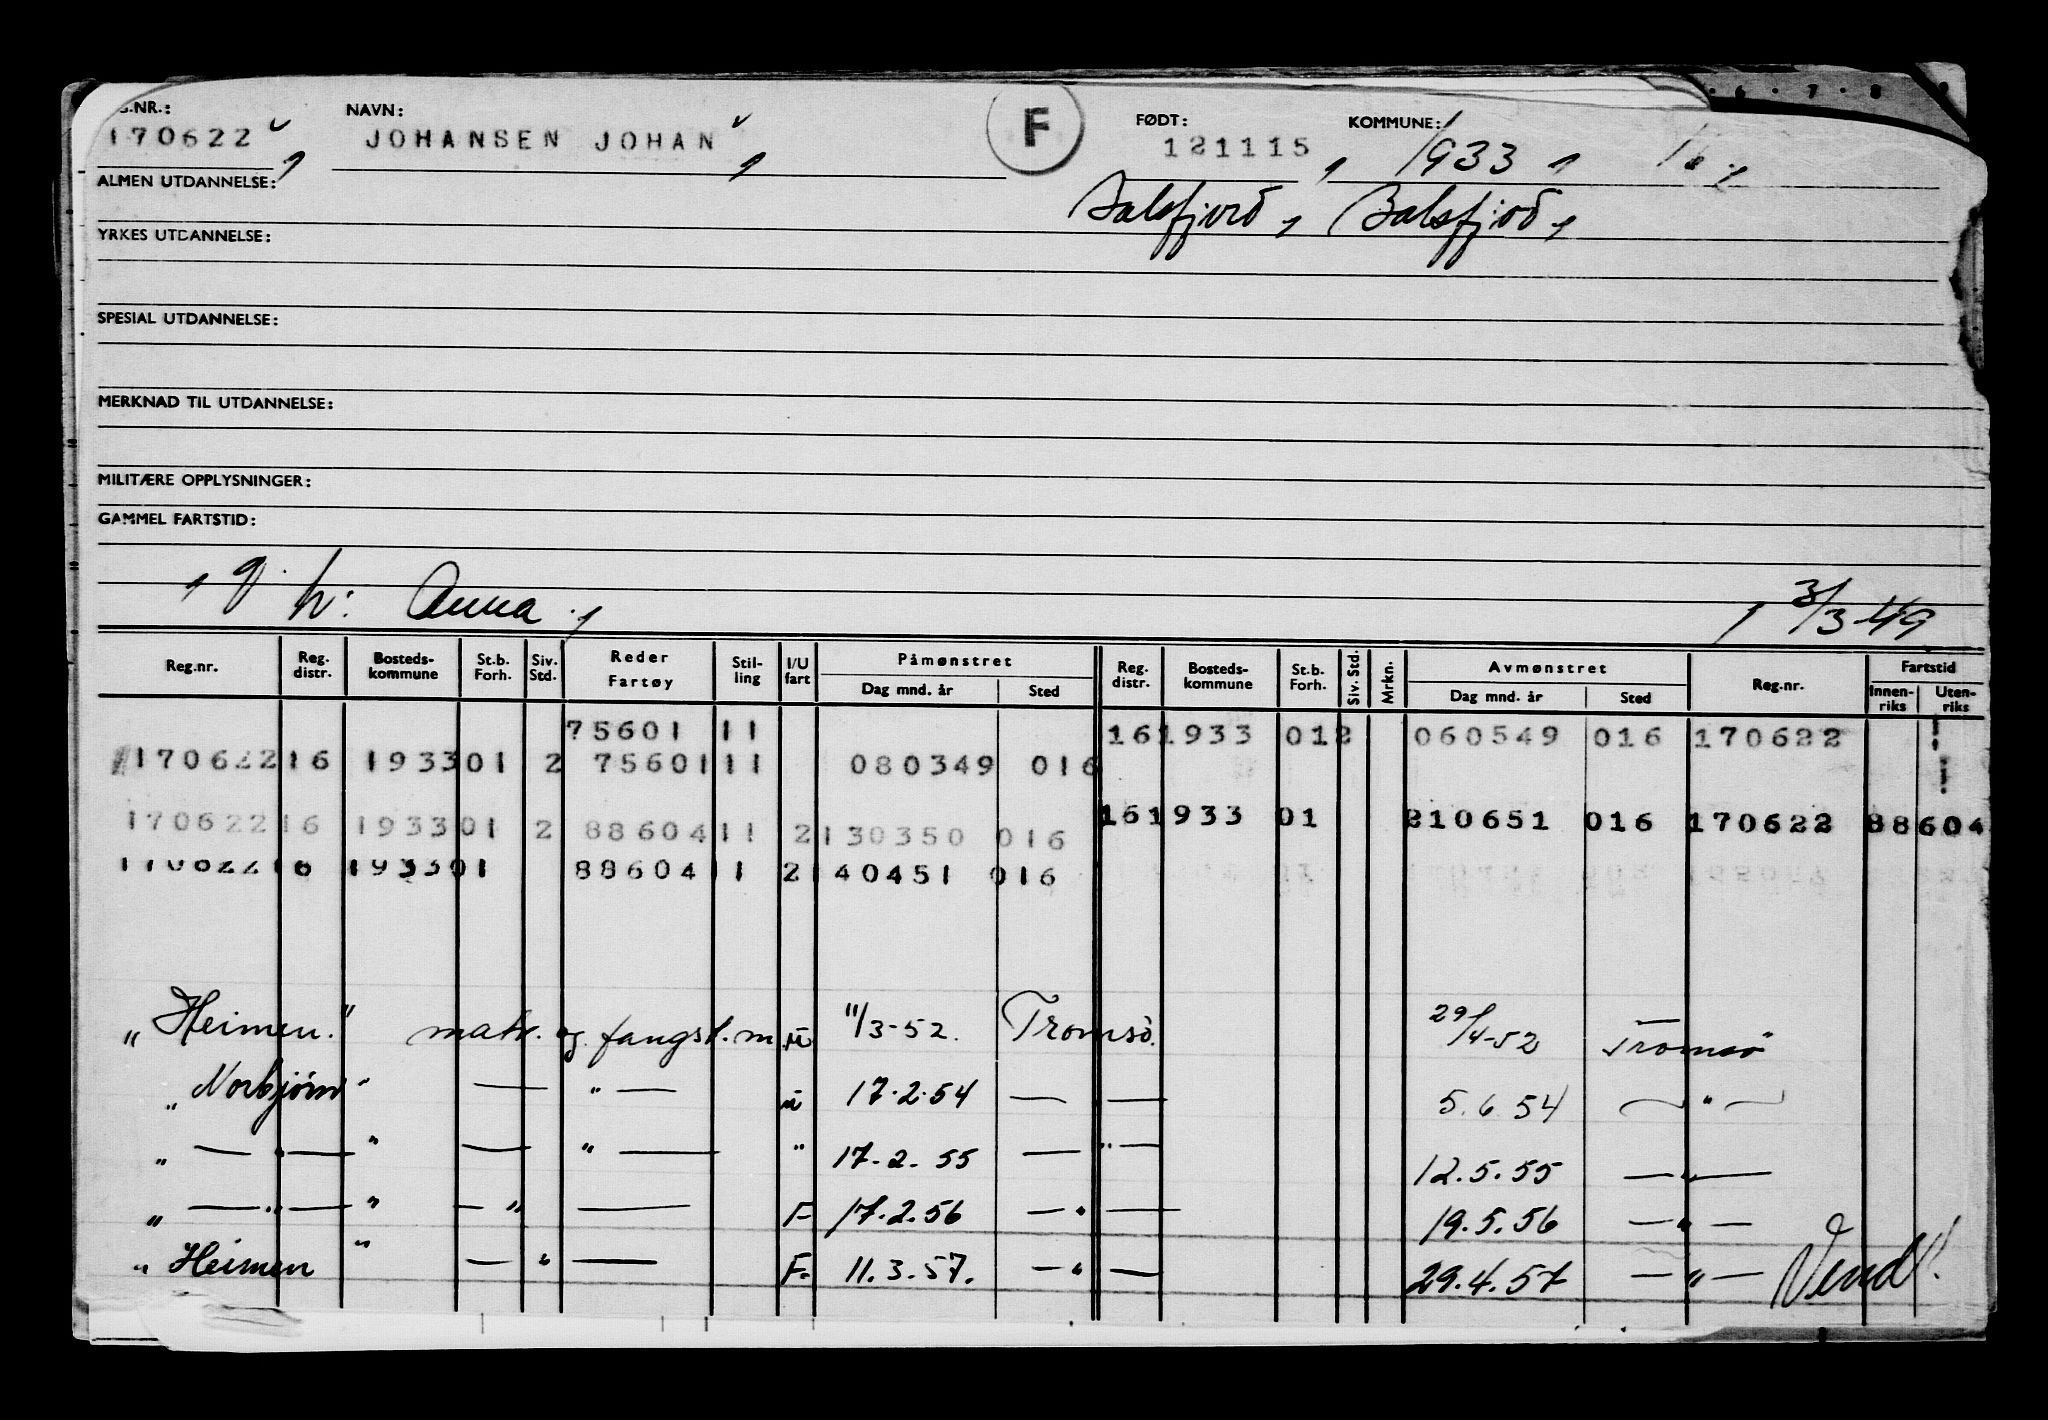 G.NR.: NAVN: F FØDT: KOMMUNE:
170622 JOHANSEN JOHAN 121115 1933
ALMEN UTDANNELSE: Balsfjord, Balsfjord,
YRKES UTDANNELSE:
SPESIAL UTDANNELSE:
MERKNAD TIL UTDANNELSE:
MILITÆRE OPPLYSNINGER:
GAMMEL FARTSTID:
g. h: Anna 3/3 49
Reg.nr. Reg. distr. Bosteds-kommune St.b. Forh. Siv. Std. Reder Fartøy Stil-ling I/U fart Påmønstret Dag mnd. år Sted Reg. distr. Bosteds-kommune St.b. Forh. Siv. Std. Mrkn. Avmønstret Dag mnd. år Sted Reg.nr. Fartstid Innen-riks Uten-riks
75601 11 16 1933 01 2 060549 016 170622
170622 16 1933 01 2 75601 11 080349 016
170622 16 1933 01 2 88604 11 2 130350 016 16 1933 01 210651 016 170622 88604
170622 16 1933 01 88604 11 2 140451 016
"Heimen." matr. og fangst.m. u 11/3-52. Tromsø. 29/4-52 Tromsø
"Norbjørn" — " — u 17.2.54 — — 5.6.54 — " —
" — " — " — " — " 17.2.55 — " — 12.5.55 — " —
" — " — " — " — F 17.2.56 — " — 19.5.56 — " —
" Heimen " — " — F. 11.3.57. — " — 29.4.57 — " — Vend!